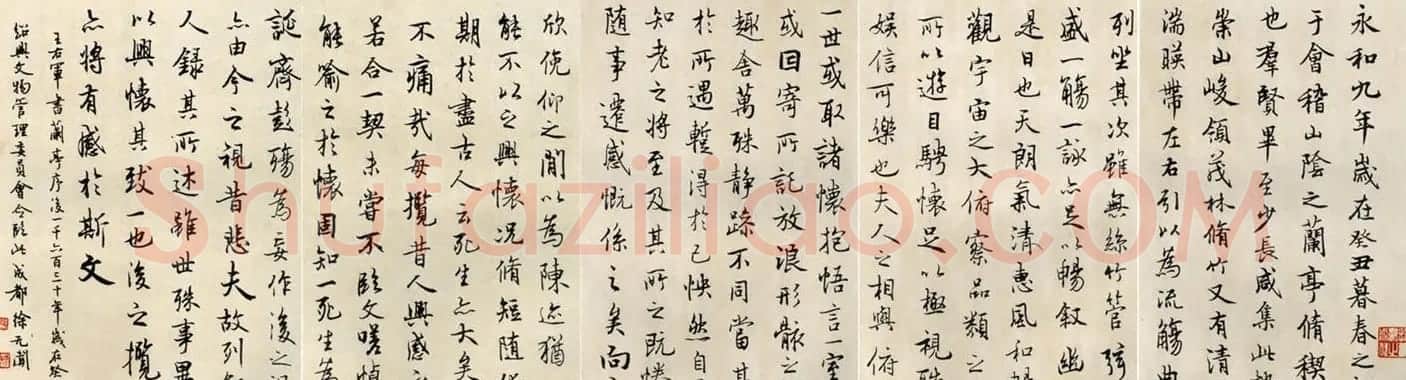 永和九年歲在癸丑暮春之
于會稽山陰之蘭亭脩禊
也羣賢畢至少長咸集此
崇山峻領茂林脩竹又有清
湍暎帶左右引以為流觴曲
列坐其次雖無絲竹管弦
盛一觴一詠亦足以暢敘幽
是日也天朗氣清惠風和暢
觀宇宙之大俯察品類之
所以遊目騁懷足以極視聽
娛信可樂也夫人之相與俯
一世或取諸懷抱悟言一室
或因寄所託放浪形骸之
趣舍萬殊静躁不同當其
於所遇蹔得於己怏然自
知老之將至及其所之既惓
随事遷感慨係之矣向
欣俛仰之閒以為陳迹猶
能不以之興懷況脩短随
期於盡古人云死生亦大矣
不痛哉每攬昔人興感
若合一契未嘗不臨文嗟悼
能喻之於懷固知一死生為
誕齊彭殤為妄作後之
亦由今之視昔悲夫故列
人錄其所述雖世殊事異
以興懷其致一也後之攬
亦將有感於斯文
王右軍書蘭亭序後千六百三十年歲在癸
紹興文物管理委員會令臨此成都徐无聞
Shufaziliao.COM